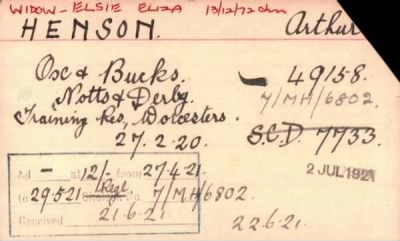 WIDOW - ELSIE ELIZA 13/12/72
HENSON. Arthur
Oxc & Bucks. — 49158.
Notts & Derby. 7/MH/6802.
Training Res, Worcesters.
27.2.20. S.C.D. 7733.
2 JUL 1921
Ad — at 12/- from 27.4.21.
Regt.
to 29.5.21 7/MH/6802.
Received 21.6.21. 22.6.21.